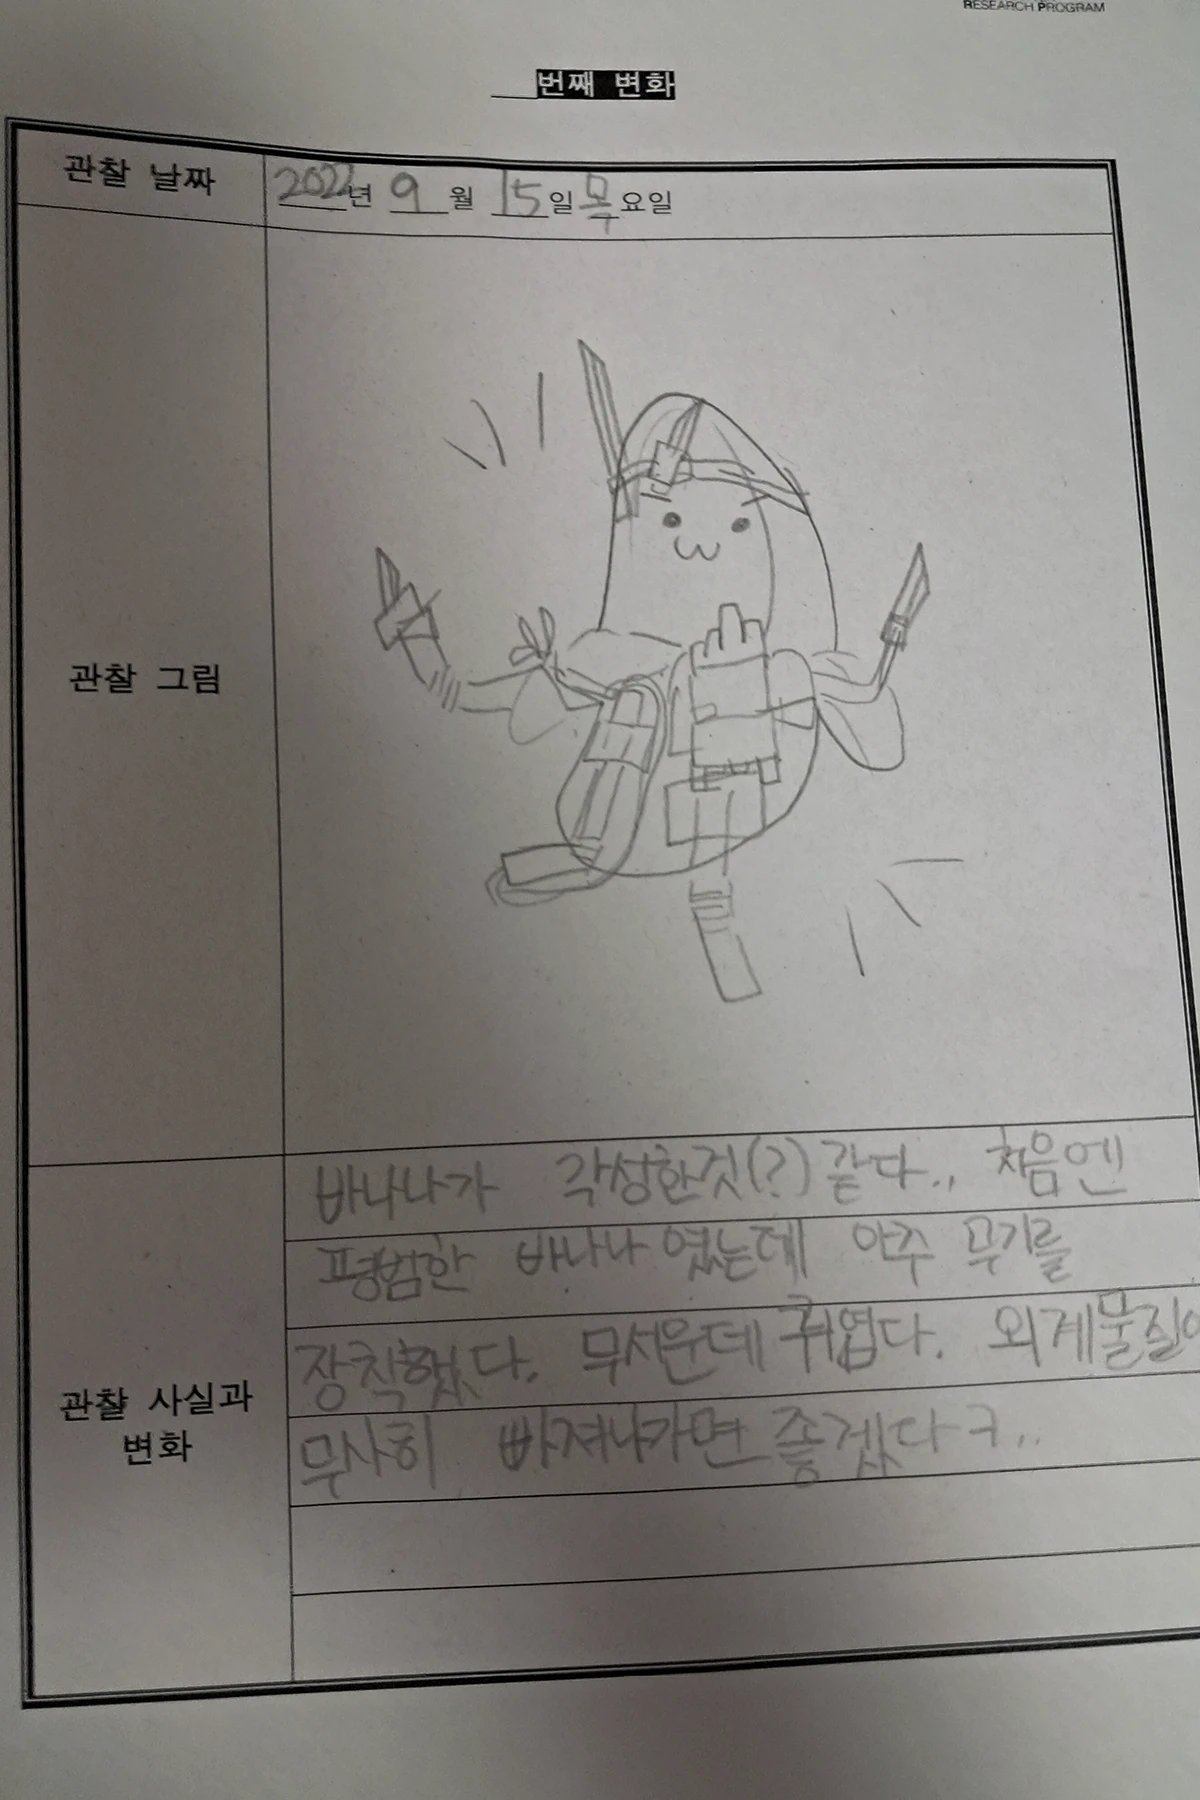 RESEARCH PROGRAM
번째 변화
관찰 날짜
2022년 9월 15일 목요일
관찰 그림
관찰 사실과
변화
바나나가 각성한것(?) 같다.. 처음엔
평범한 바나나 였는데 아주 무기를
장착했다. 무서운데 귀엽다. 외계물질이
무사히 빠져나가면 좋겠다ㅋ..